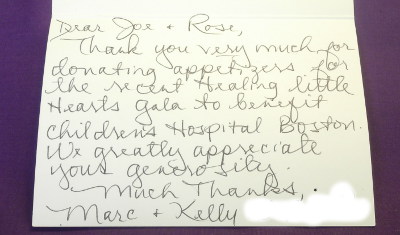 Dear Joe + Rose,
Thank you very much for
donating appetizers for
the recent Healing little
Hearts gala to benefit
childrens Hospital Boston.
We greatly appreciate
your generosity.
Much Thanks,
Marc + Kelly